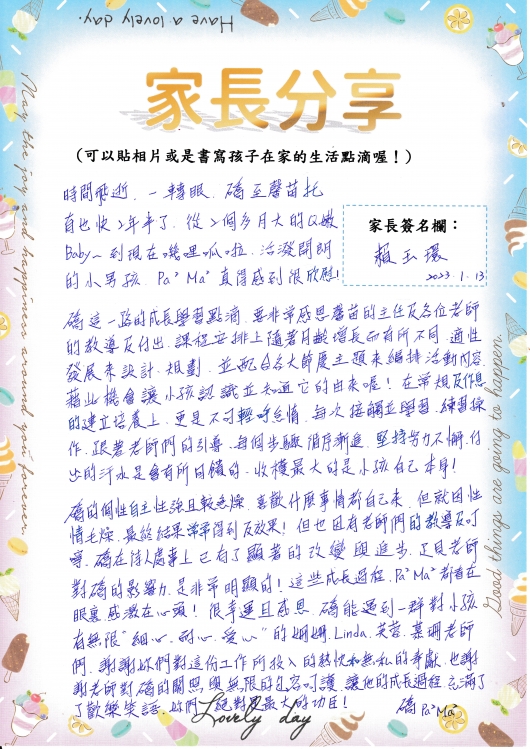 Have a lovely day.
家長分享
(可以貼相片或是書寫孩子在家的生活點滴喔!)
時間飛逝、一轉眼、礄至馨苗托
育也快2年來了、從2個多月大的Q嫩
Baby~到現在嘰哩呱啦、活潑開朗
的小男孩、Pa² Ma² 真得感到很欣慰!
家長簽名欄:
賴玉環
2023.1.13
礄這一路的成長學習點滴、要非常感恩馨苗的主任及各位老師
的教導及付出、課程安排上隨著月齡增長而有所不同、適性
發展來設計、規劃、並配合各大節慶主題來編排活動內容
藉此機會讓小孩認識並知道它的由來喔!在常規及作息
的建立培養上、更是不可輕忽怠惰、每次接觸並學習、練習操
作、跟著老師們的引導、每個步驟循序漸進、堅持努力不懈、付
出的汗水是會有所回饋的、收穫最大的是小孩自己本身!
礄的個性自主性強且較急燥、喜歡什麼事情都自己來、但就因性
情毛燥、最終結果常常得到反效果!但也因有老師們的教導及叮
嚀、礄在待人處事上已有了顯著的改變與進步、足見老師
對礄的影響力是非常明顯的!這些成長過程、Pa² Ma² 都看在
眼裏感激在心頭!很幸運且感恩、礄能遇到一群對小孩
有無限"細心、耐心、愛心"的姍姍、Linda、芙蓉、慕珊老師
們、謝謝妳們對這份工作所投入的熱忱和無私的奉獻、也謝
謝老師對礄的關照與無限的包容呵護、讓他的成長過程充滿了
了歡樂笑語、妳們絕對是最大的功臣!
礄Pa² Ma²
Lovely day
May the joy and happiness around you forever.
Good things are going to happen.